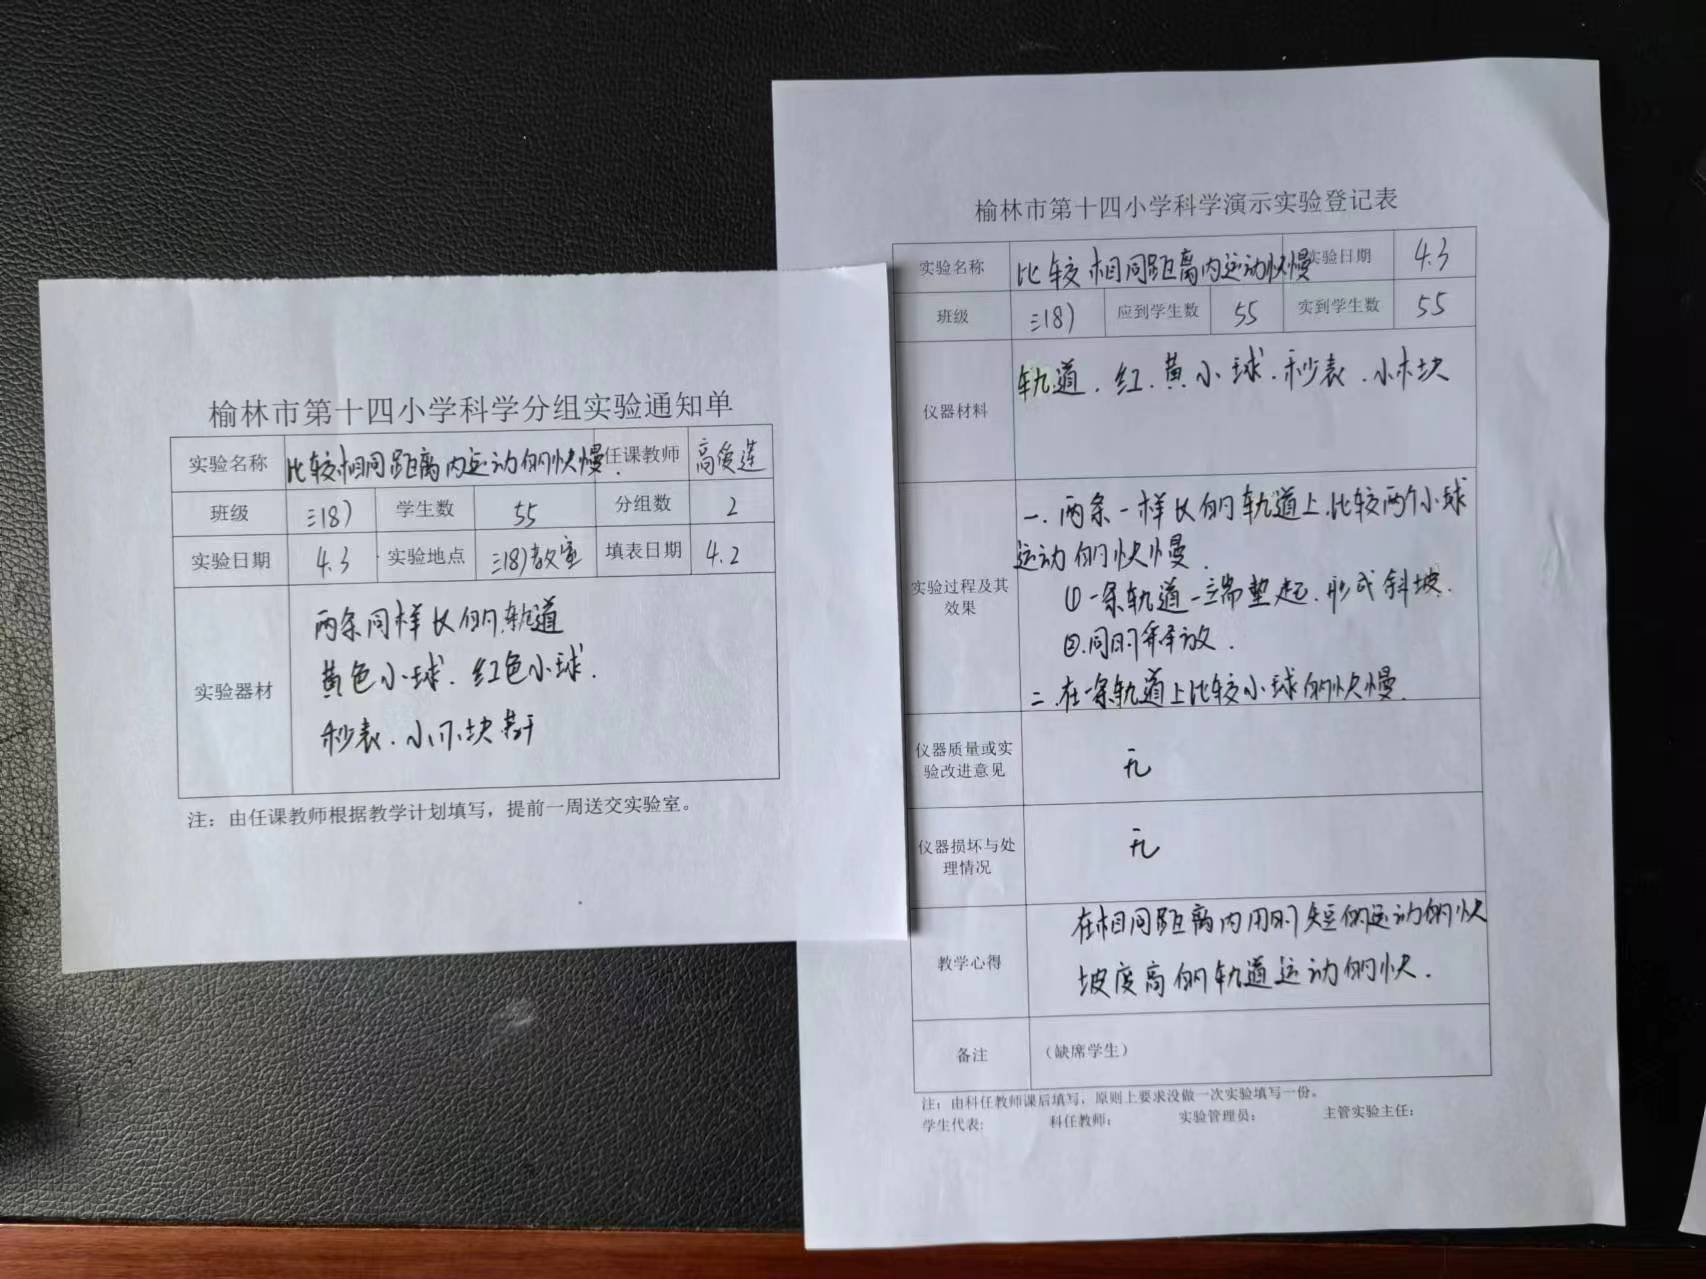 榆林市第十四小学科学分组实验通知单
实验名称 比较相同距离内运动的快慢. 任课教师 高俊莲
班级 三(8) 学生数 55 分组数 2
实验日期 4.3 实验地点 三(8)教室 填表日期 4.2
实验器材
两条同样长的轨道
黄色小球、红色小球.
秒表、小木块若干
注：由任课教师根据教学计划填写，提前一周送交实验室。
榆林市第十四小学科学演示实验登记表
实验名称 比较相同距离内运动快慢 实验日期 4.3
班级 三(8) 应到学生数 55 实到学生数 55
仪器材料
轨道、红、黄小球、秒表、小木块
实验过程及其
效果
一、两条一样长的轨道上比较两个小球
运动的快慢.
①一条轨道一端垫起、形成斜坡.
②同时释放.
二、在一条轨道上比较小球的快慢.
仪器质量或实
验改进意见
无
仪器损坏与处
理情况
无
教学心得
在相同距离内用时短的运动的快
坡度高的轨道运动的快.
备注 （缺席学生）
注：由科任教师课后填写，原则上要求没做一次实验填写一份。
学生代表: 科任教师： 实验管理员： 主管实验主任：